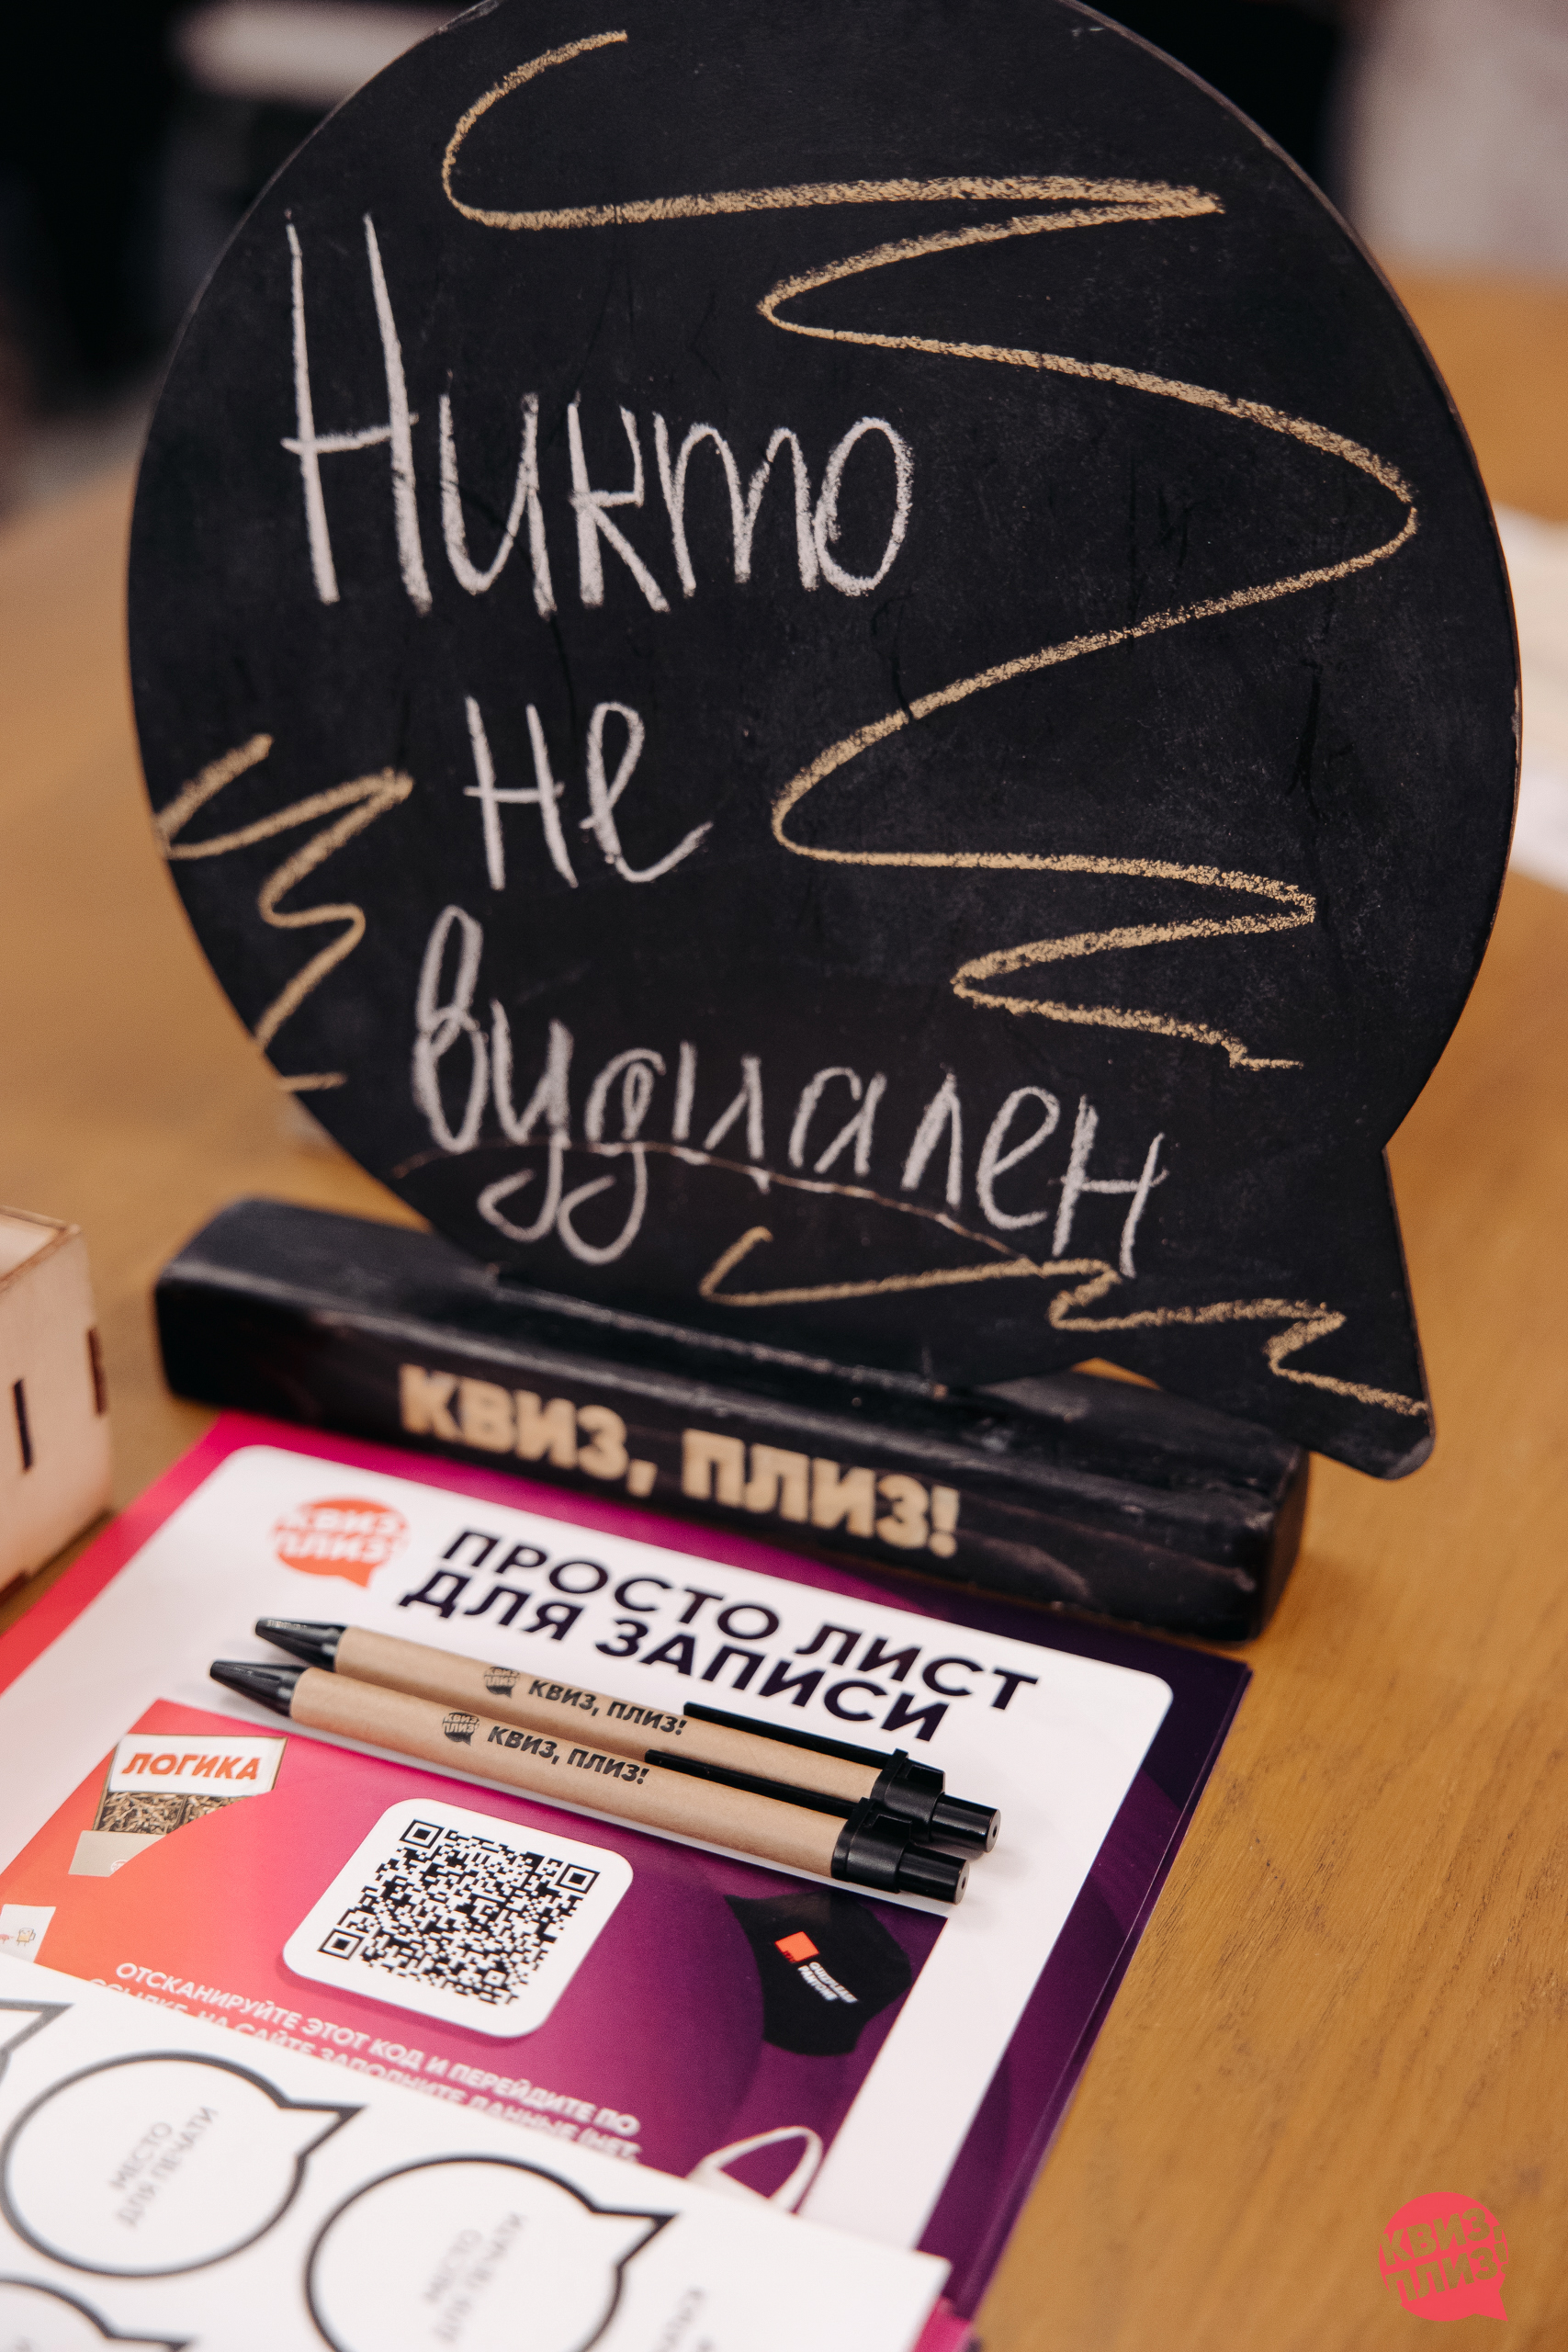 Никто
не
вудиален
КВИЗ, ПЛИЗ!
КВИЗ,
ПЛИЗ!
ПРОСТО ЛИСТ
ДЛЯ ЗАПИСИ
КВИЗ,
ПЛИЗ!
КВИЗ, ПЛИЗ!
КВИЗ,
ПЛИЗ!
КВИЗ, ПЛИЗ!
ЛОГИКА
ОТСКАНИРУЙТЕ ЭТОТ КОД И ПЕРЕЙДИТЕ ПО
ССЫЛКЕ. НА САЙТЕ ЗАПОЛНИТЕ ДАННЫЕ (НЕТ,
МЕСТО
ДЛЯ ПЕЧАТИ
МЕСТО
ДЛЯ ПЕЧАТИ
КВИЗ,
ПЛИЗ!